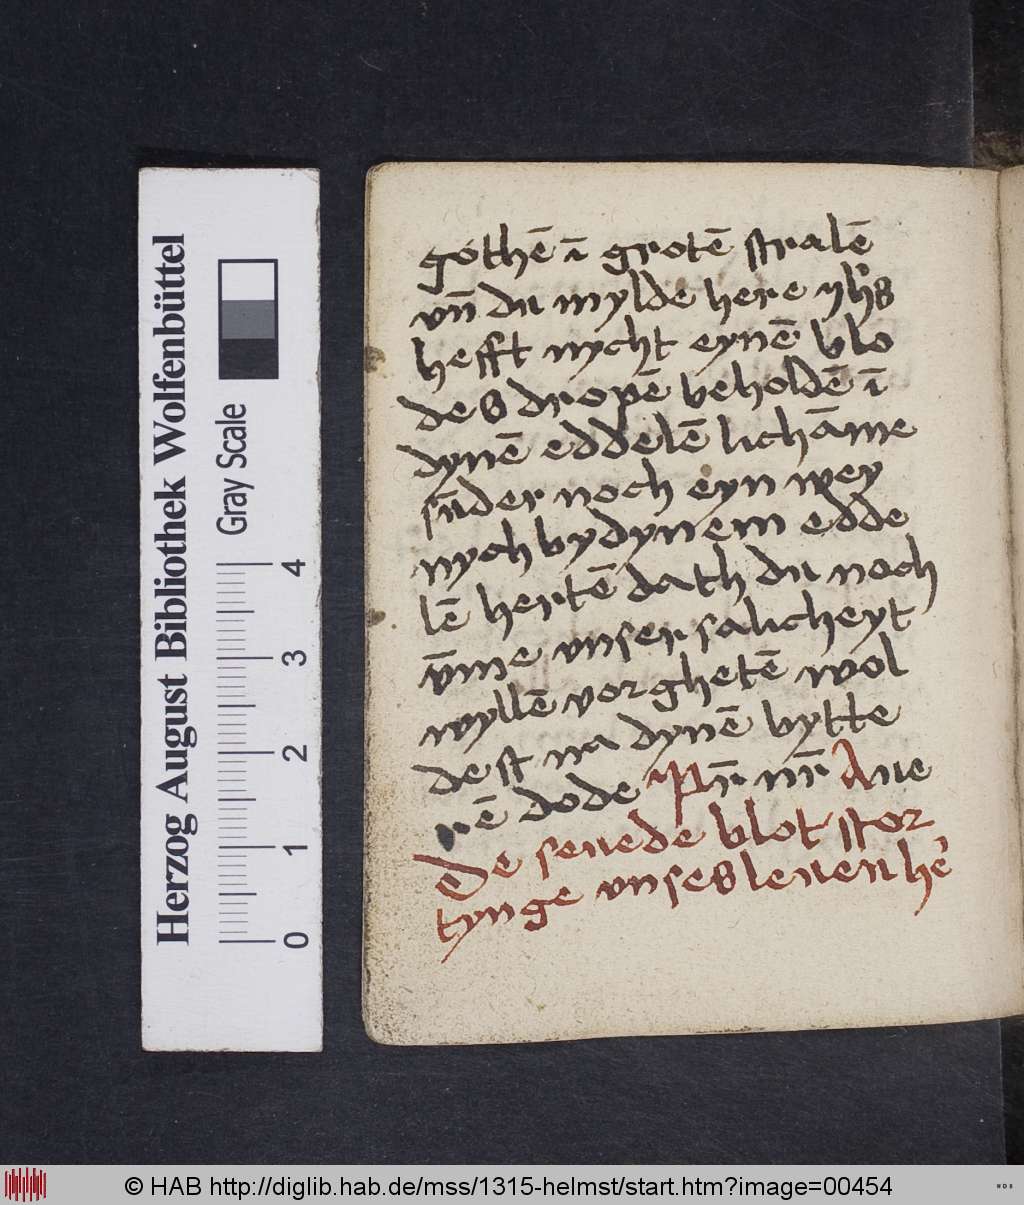 gothē ī grotē stralē
vn̄ du mylde here yh's
hefft nycht eynē blo
des dropē beholdē ī
dynē eddelē lichāme
sūder noch eyn wey
nych by dynem edde
lē hertē dath du noch
v̄me vnser salicheyt
wyllē vorghetē wol
dest na dynē bytte
rē dode Pr̄ nr̄ Aue
De seuede blot stor
tynge vnses leuen he'
Herzog August Bibliothek Wolfenbüttel
Gray Scale
4
3
2
1
0
© HAB http://diglib.hab.de/mss/1315-helmst/start.htm?image=00454